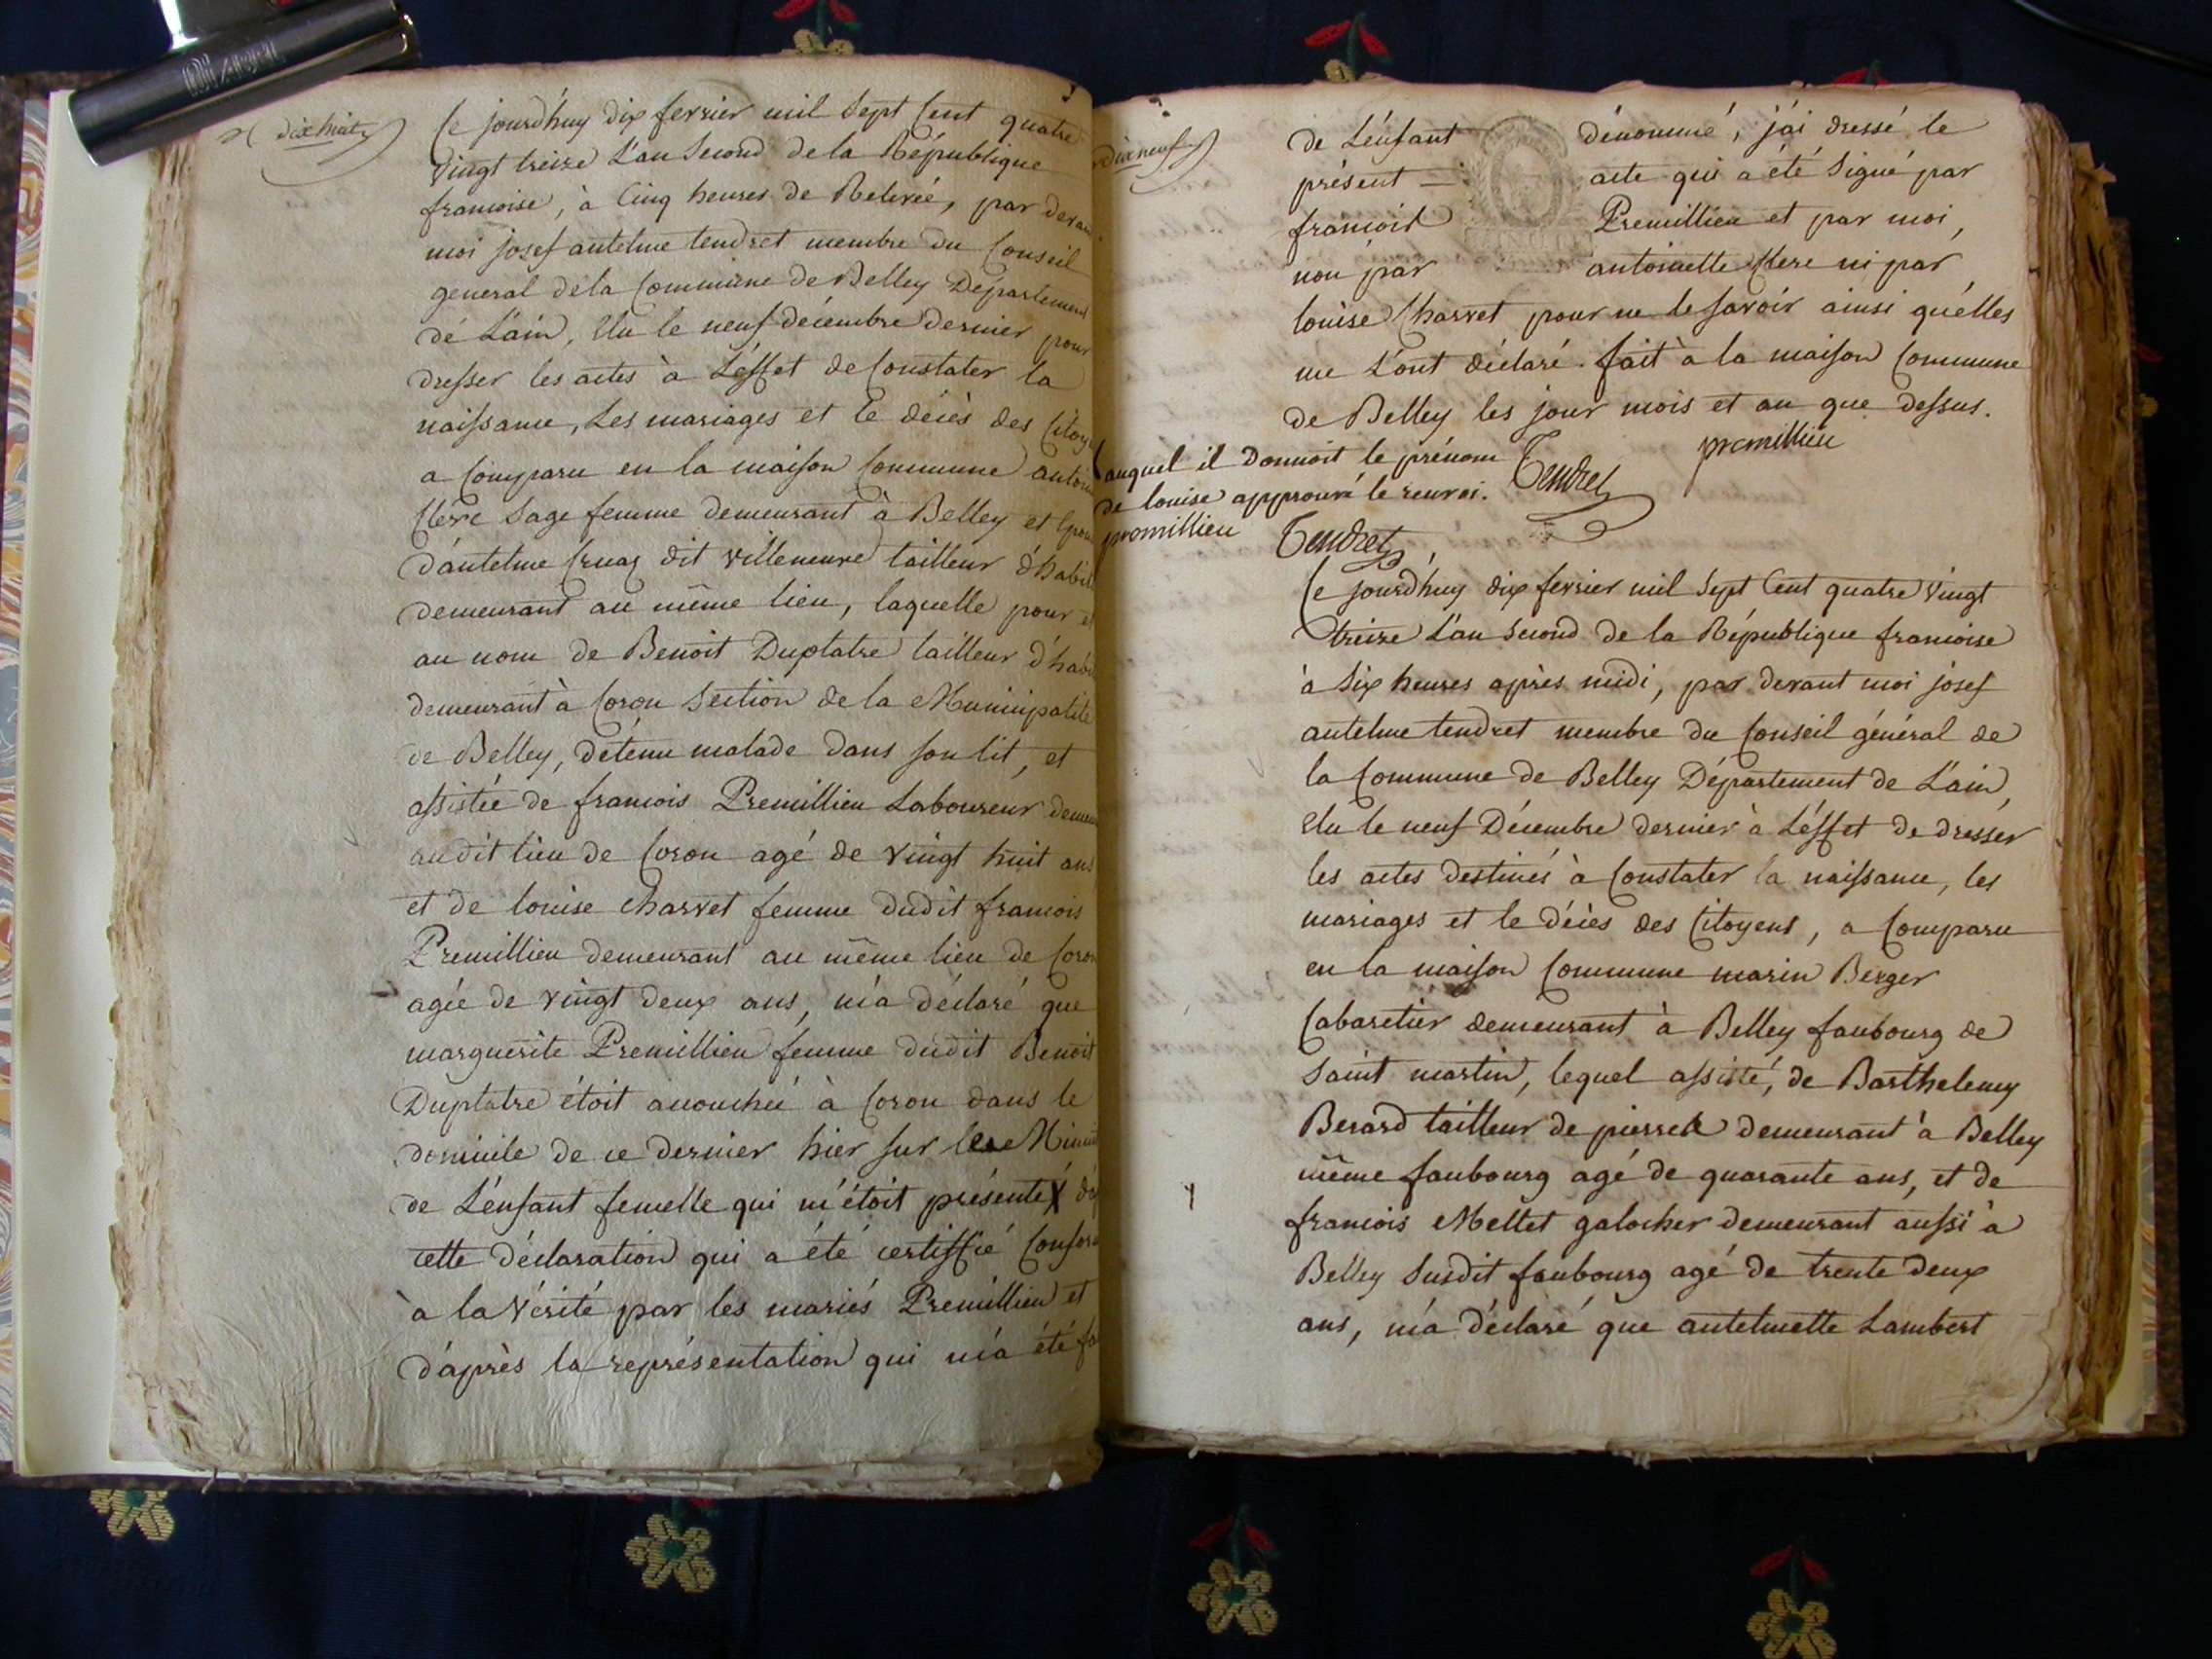 dix huit
Ce jourd'huy dix fevrier mil sept Cent quatre
vingt treize L'an second de la République
francoise, à Cinq heures de Relevée, par devan
moi josef antelme tendret membre du Conseil
general de la Commune de Belley Département
de L'ain, Elu le neuf décembre dernier pour
dresser les actes à L'éffet de Constater la
naissance, Les mariages et Le décès des Citoye
a Comparu en la maison Commune antoin
Clerc Sage femme demeurant à Belley et Epou
d'antelme Cruaz dit villeneuve tailleur d'habit
demeurant au même lieu, laquelle pour et
au nom de Benoit Duplatre tailleur d'habi
demeurant à Coron Section de la Municipalité
de Belley, détenu malade dans son lit, et
assistée de francois Premillieu Laboureur demeu
audit lieu de Coron agé de vingt huit ans
et de louise charvet femme dudit francois
Premillieu demeurant au même lieu de Coron
agée de vingt deux ans, m'a déclaré que
marguerite Premillieu femme dudit Benoit
Duplatre étoit accouchée à Coron dans le
domicile de ce dernier hier sur les Minuit
de L'énfant femelle qui m'étoit présenté
cette déclaration qui a été certiffié Confor
à la vérité par les mariés Premillieu et
d'après la représentation qui m'a été fa
dix neuf
de L'énfant dénommé, j'ai dressé le
présent acte qui a été Signé par
francois Premillieu et par moi,
non par antoinette Clerc ni par
louise Charvet pour ne le savoir ainsi qu'elles
me L'ont déclaré. fait à la maison Commune
de Belley les jour mois et an que dessus.
premillieu
auquel il donnoit le prénom
de louise approuvé le renvoi. Tendret
premillieu Tendret
Ce jourd'huy dix fevrier mil Sept Cent quatre vingt
treize L'an second de la République francoise
à six heures après midi, par devant moi josef
antelme tendret membre du Conseil général de
la Commune de Belley Département de L'ain,
Elu le neuf Décembre dernier à L'éffet de dresser
les actes destinés à Constater la naissance, les
mariages et le décès des Citoyens, a Comparu
en la maison Commune marin Berger
Cabaretier demeurant à Belley faubourg de
Saint martin, lequel assisté, de Barthelemy
Berard tailleur de pierre demeurant à Belley
même faubourg agé de quarante ans, et de
francois Mettet galocher demeurant aussi à
Belley Susdit faubourg agé de trente deux
ans, m'a déclaré que antelmette Lambert